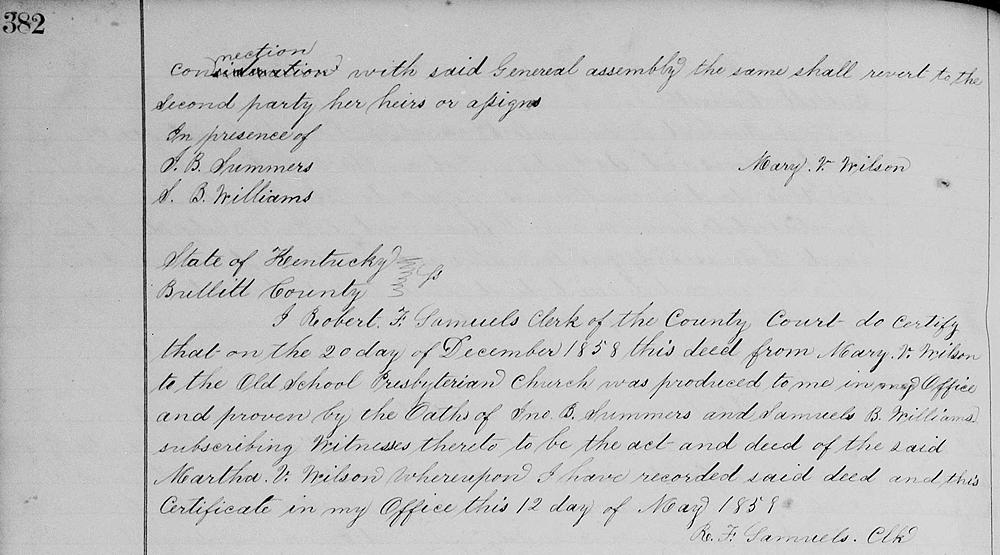 382
nection
consideration with said Genereal assembly the same shall revert to the
Second party her heirs or assigns
In presence of
J. B. Summers
Mary. V. Wilson
S. B. Williams
State of Kentucky
Bullitt County
I Robert. F. Samuels Clerk of the County Court do certify
that on the 20 day of December 1858 this deed from Mary. V. Wilson
to the Old School Presbyterian Church was produced to me in my Office
and proven by the Oaths of Jno. B. Summers and Samuels B. Williams
subscribing Witnesses thereto to be the act and deed of the said
Martha. V. Wilson whereupon I have recorded said deed and this
Certificate in my Office this 12 day of May 1859
R. F. Samuels. Clk